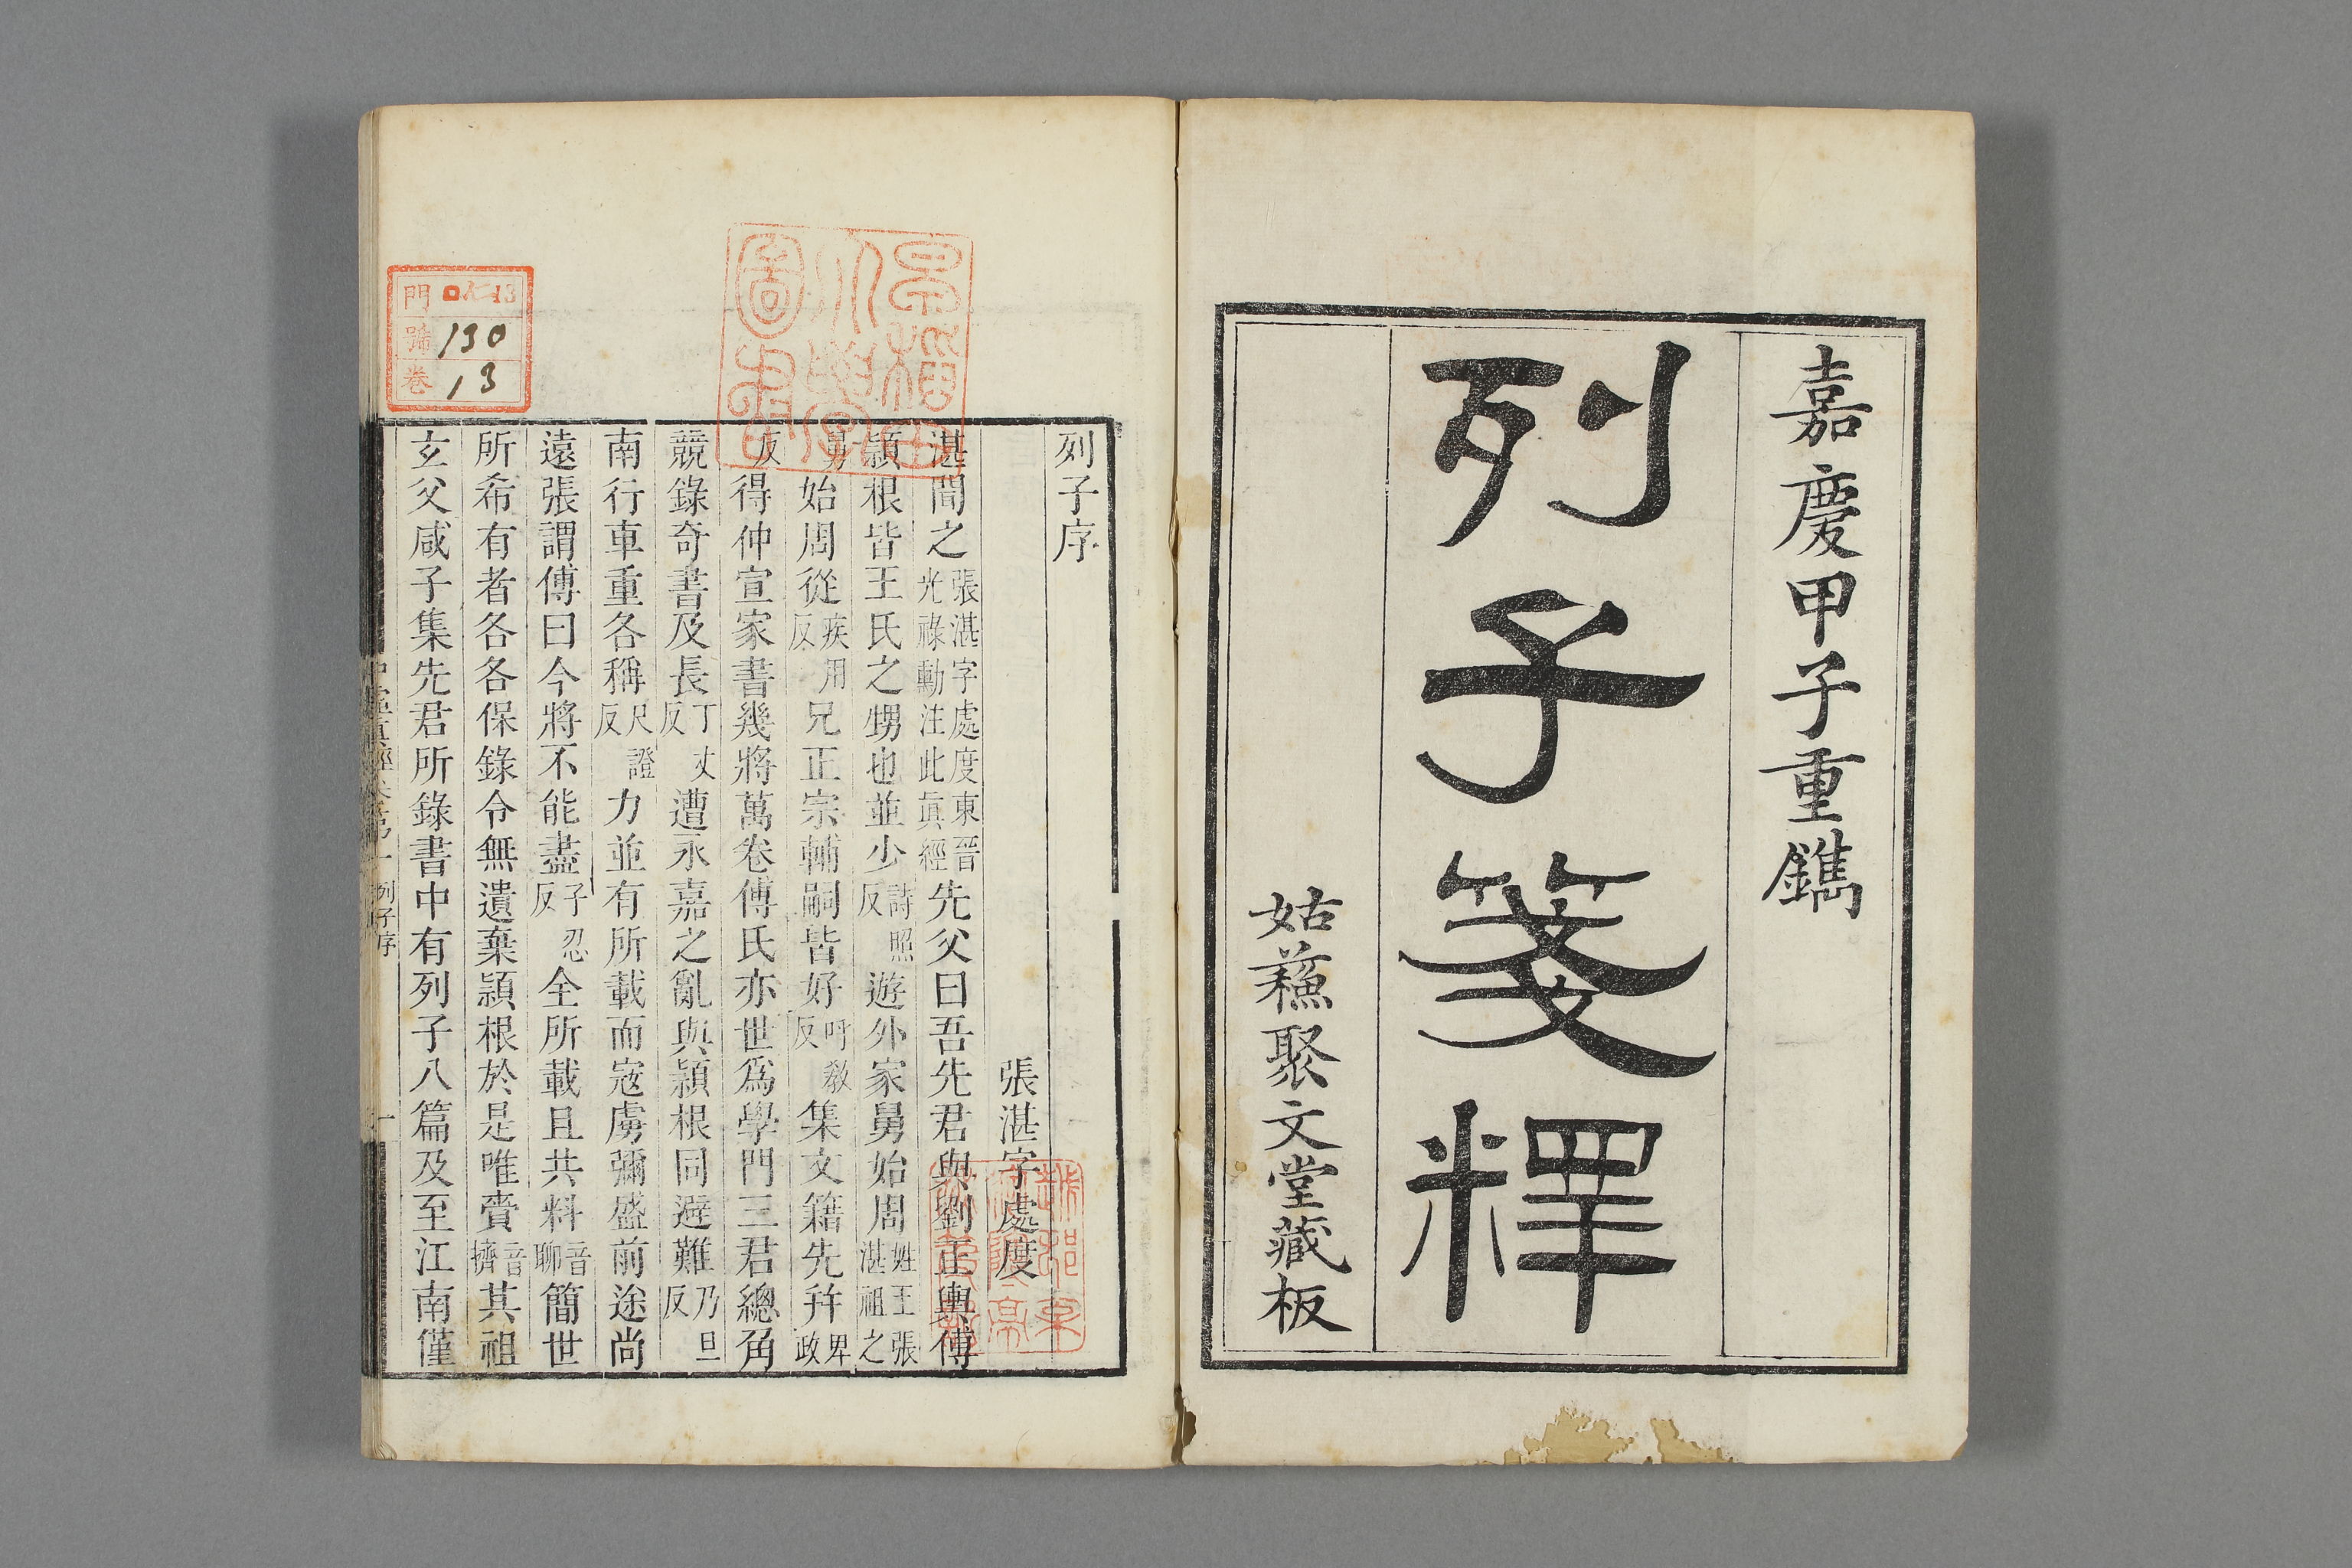 嘉慶甲子重鐫
列子箋釋
姑蘇聚文堂藏板
列子序
張湛字處度
湛聞之張湛字處度東晉光祿勳注此眞經先父曰吾先君與劉正輿傅
頴根皆王氏之甥也並少詩照反遊外家舅始周姓王張湛祖之
舅始周從疾用反兄正宗輔嗣皆好呼敎反集文籍先幷卑政
反得仲宣家書幾將萬卷傅氏亦世爲學門三君總角
競錄奇書及長丁丈反遭永嘉之亂與頴根同避難乃旦反
南行車重各稱尺證反力並有所載而寇虜彌盛前途尚
遠張謂傅曰今將不能盡子忍反全所載且共料音聊簡世
所希有者各各保錄令無遺棄頴根於是唯賫音擠其祖
玄父咸子集先君所錄書中有列子八篇及至江南僅
列子序
一
門 13
號 130
卷 13